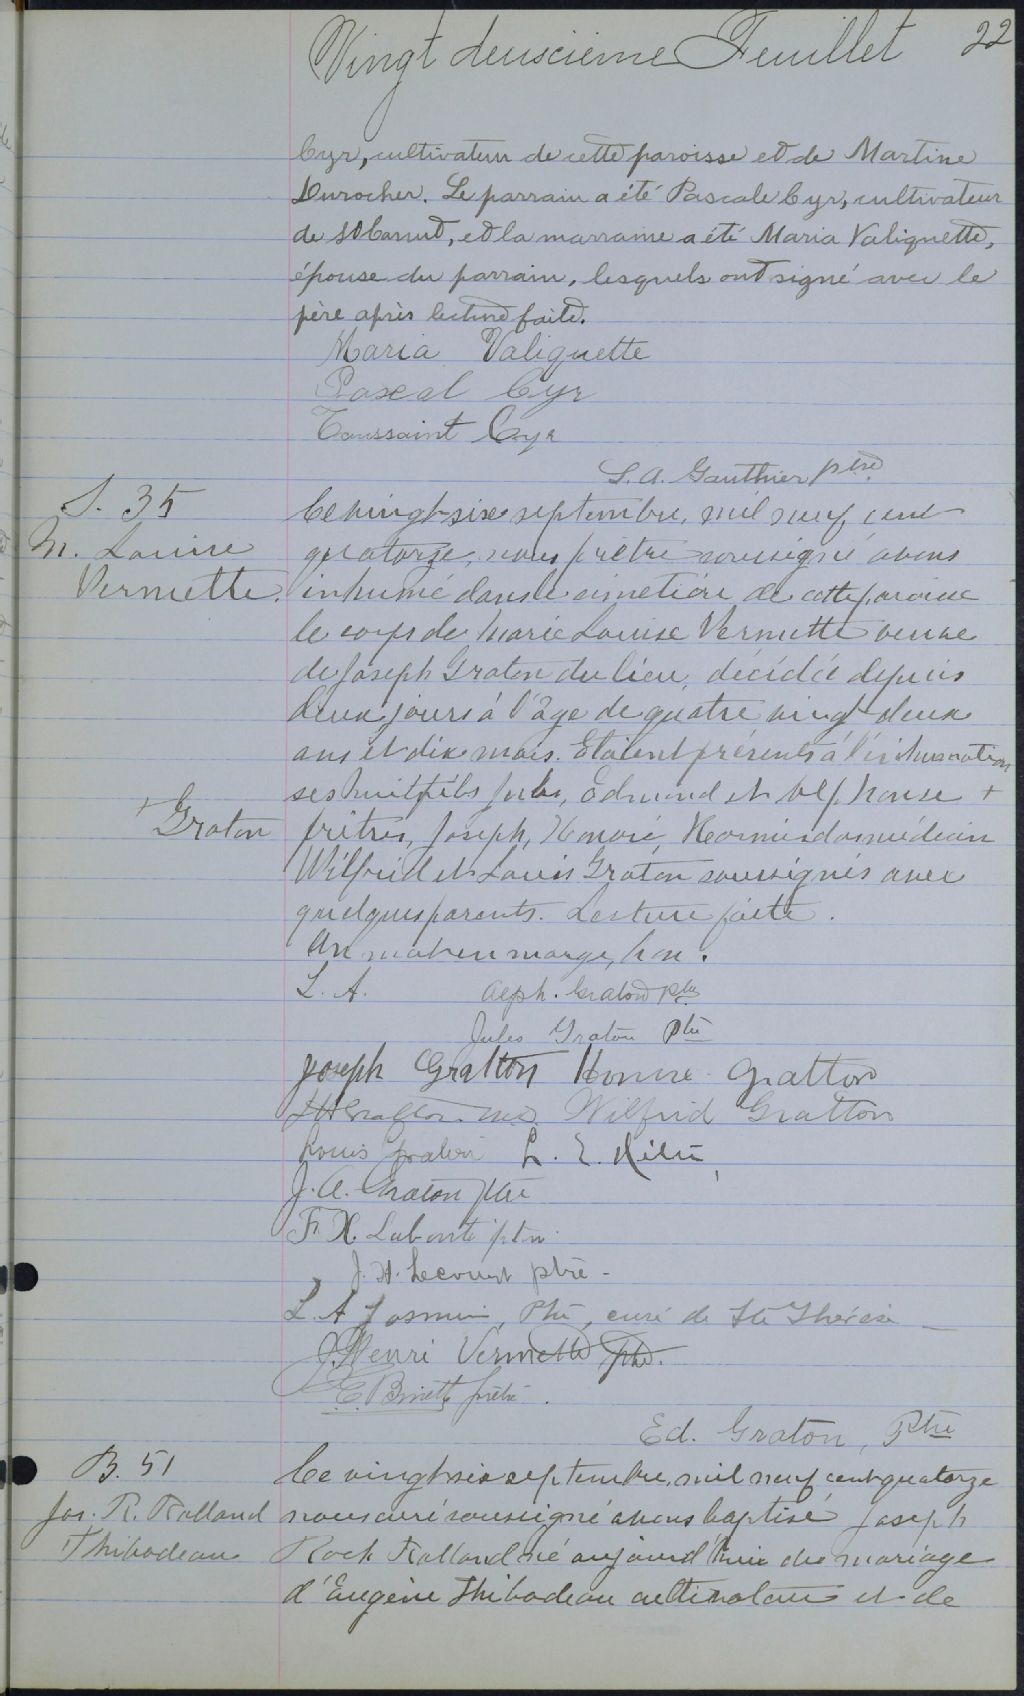 Vingt deuxcième Feuillet 22
Cyr, cultivateur de cette paroisse et de Martine
Durocher. Le parrain a été Pascale Cyr, cultivateur
de St Canut, et la marraine a été Maria Valiquette,
épouse du parrain, lesquels ont signé avec le
père après lecture faite.
Maria Valiquette
Pascal Cyr
Toussaint Cyr
S. A. Gauthier ptre
S. 35
M. Louise
Vermette.
Ce vingt-six septembre, mil neuf cent
quatorze, nous prêtre soussigné avons
inhumé dans le cimetière de cette paroisse
le corps de Marie Louise Vermette veuve
de Joseph Graton du lieu, décédée depuis
deux jours à l'âge de quatre vingt-deux
ans et dix mois. Etaient présents à l'inhumation
ses huit fils Jules, Edmond et Alphonse +
+ Graton
prêtres, Joseph, Honoré, Hormisdas médecin
Wilfrid et Louis Graton soussignés avec
quelques parents. Lecture faite.
Un mot en marge, bon.
L. A. Alph. Graton ptre
Jules Graton Ptre
Joseph Gratton Honoré Gratton
J H Gratton M.D. Wilfrid Gratton
Louis Graton L. E.
J. A. Graton ptre
F. X. Labonté ptre
J. H. Lecourt ptre -
L. A Jasmin, Ptre, curé de Ste Thérèse
J. Henri Vermette ptre.
E. Binette prêtre.
Ed. Graton, Ptre
B. 51
Jos. R. Rolland
Thibodeau
Ce vingt-six septembre, mil neuf cent quatorze
nous curé soussigné avons baptisé Joseph
Roch Rolland né aujourd'hui du mariage
d'Eugène Thibodeau cultivateur et de